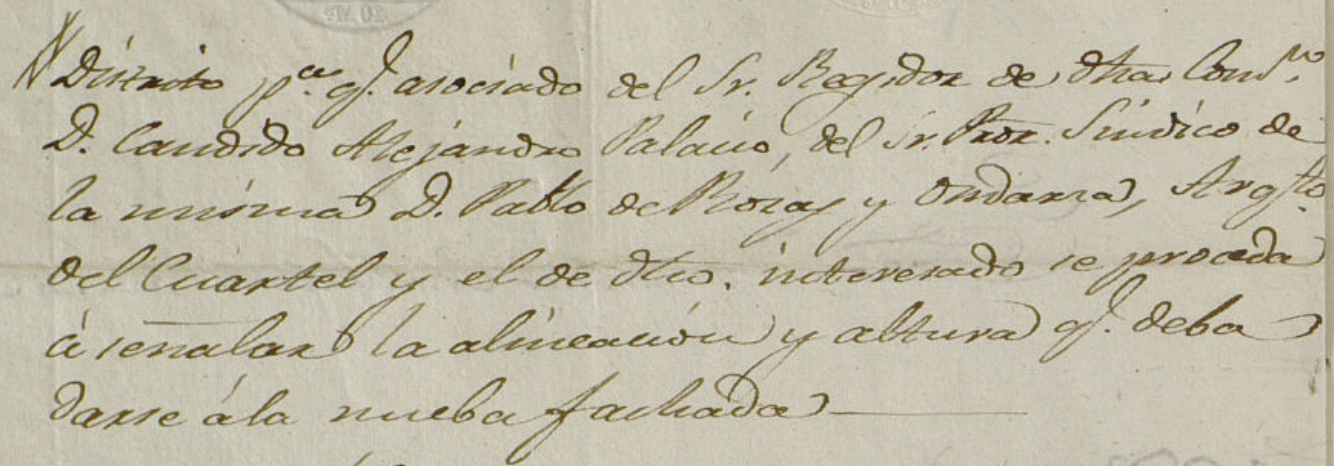 Distrito pª. q̃. asociado del Sr. Regidor de dha. Comⁿ.
D. Candido Alejandro Palacio, del Sr. Pror. Sindico de
la misma D. Pablo de Rozas y Ondarza, Arqto.
del Cuartel y el de dho. interesado se proceda
á señalar la alineacion y altura q̃. deba
darse á la nueba fachada